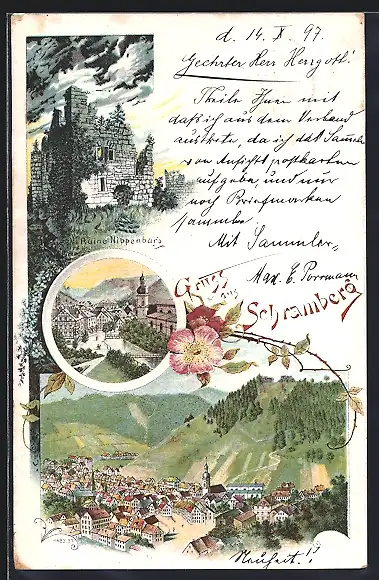 d. 14. X. 97.
Geehrter Herr Herrgott!
Theile Ihnen mit
daß ich aus dem Verband
austrete, da ich das Sammeln
von Ansichtspostkarten
aufgebe, und nur
noch Briefmarken
sammle.
Mit Sammler-
Max E. Porrmann
Ruine Nippenburg
Gruss aus
Schramberg
Neuheit!!